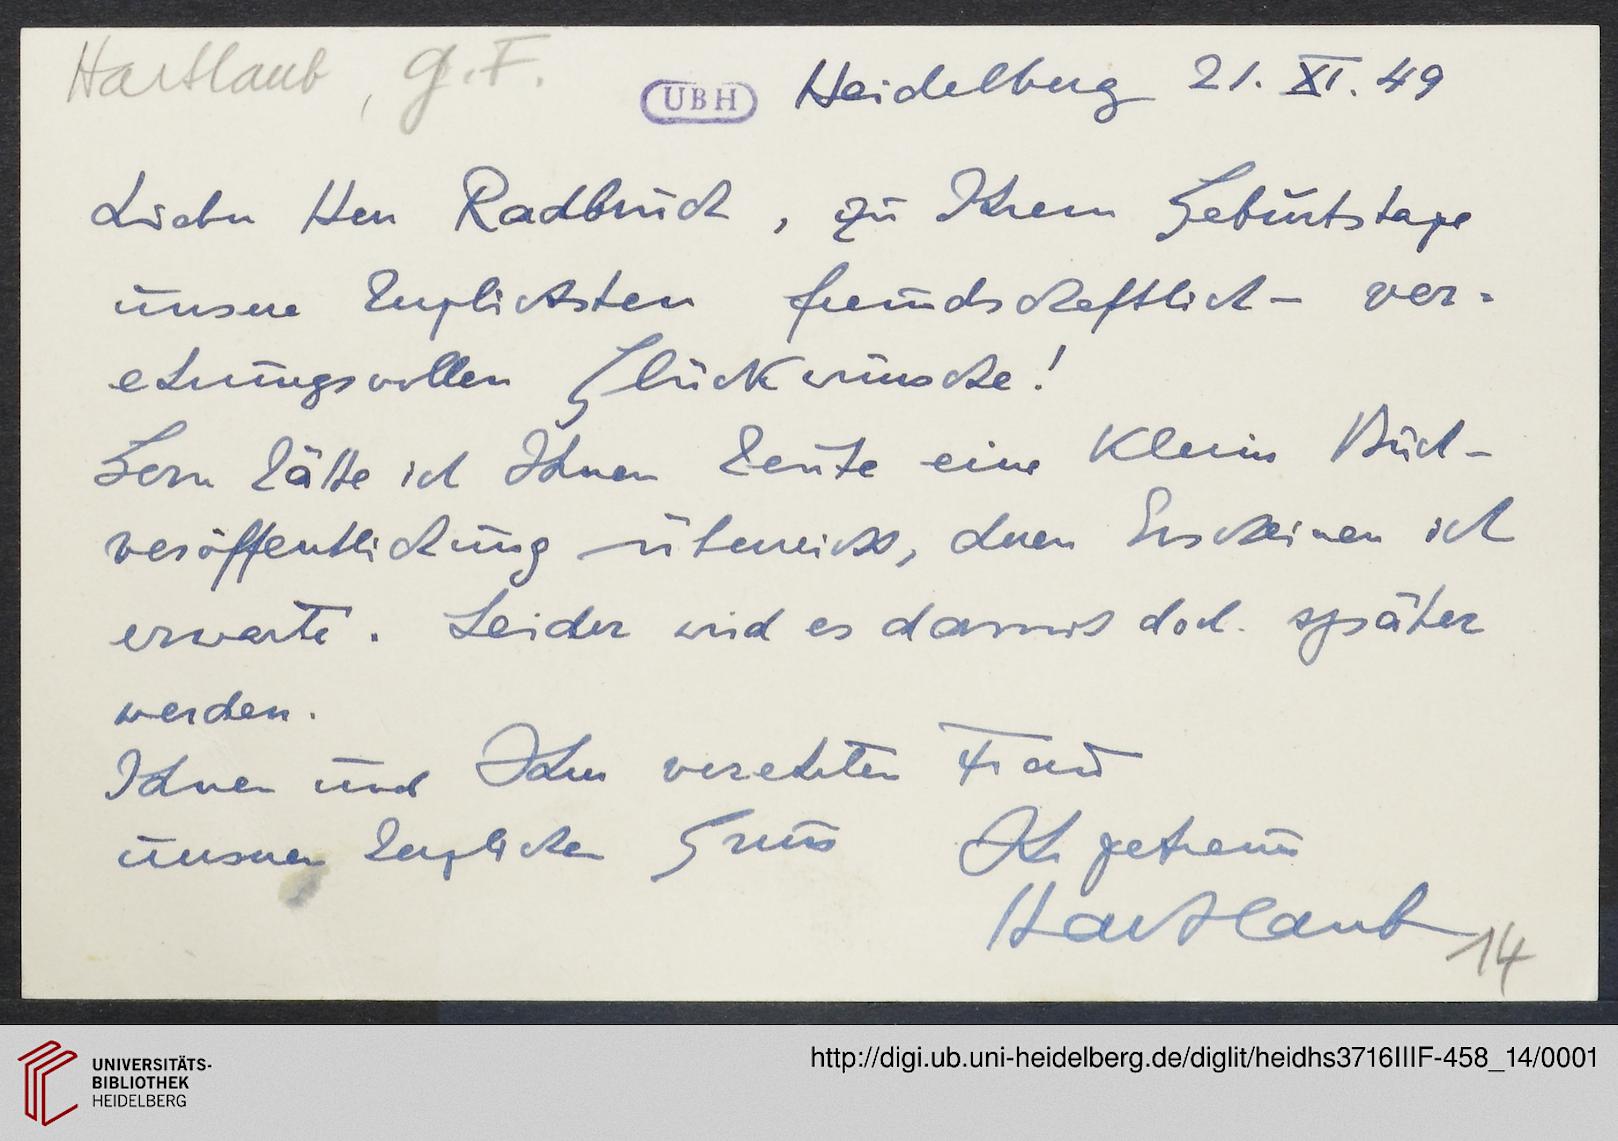 Hartlaub, G.F.
UBH
Heidelberg 21. XI. 49
Lieber Herr Radbruch, zu Ihrem Geburtstage
unsere herzlichsten freundschaftlich- ver-
ehrungsvollen Glückwünsche!
Gern hätte ich Ihnen heute eine kleine Buch-
veröffentlichung überreicht, deren Erscheinen ich
erwarte. Leider wird es damit doch später
werden.
Ihnen und Ihrer verehrten Frau
unseren herzlichen Gruss Ihr getreuer
Hartlaub
14
UNIVERSITÄTS-
BIBLIOTHEK
HEIDELBERG
http://digi.ub.uni-heidelberg.de/diglit/heidhs3716IIIF-458_14/0001